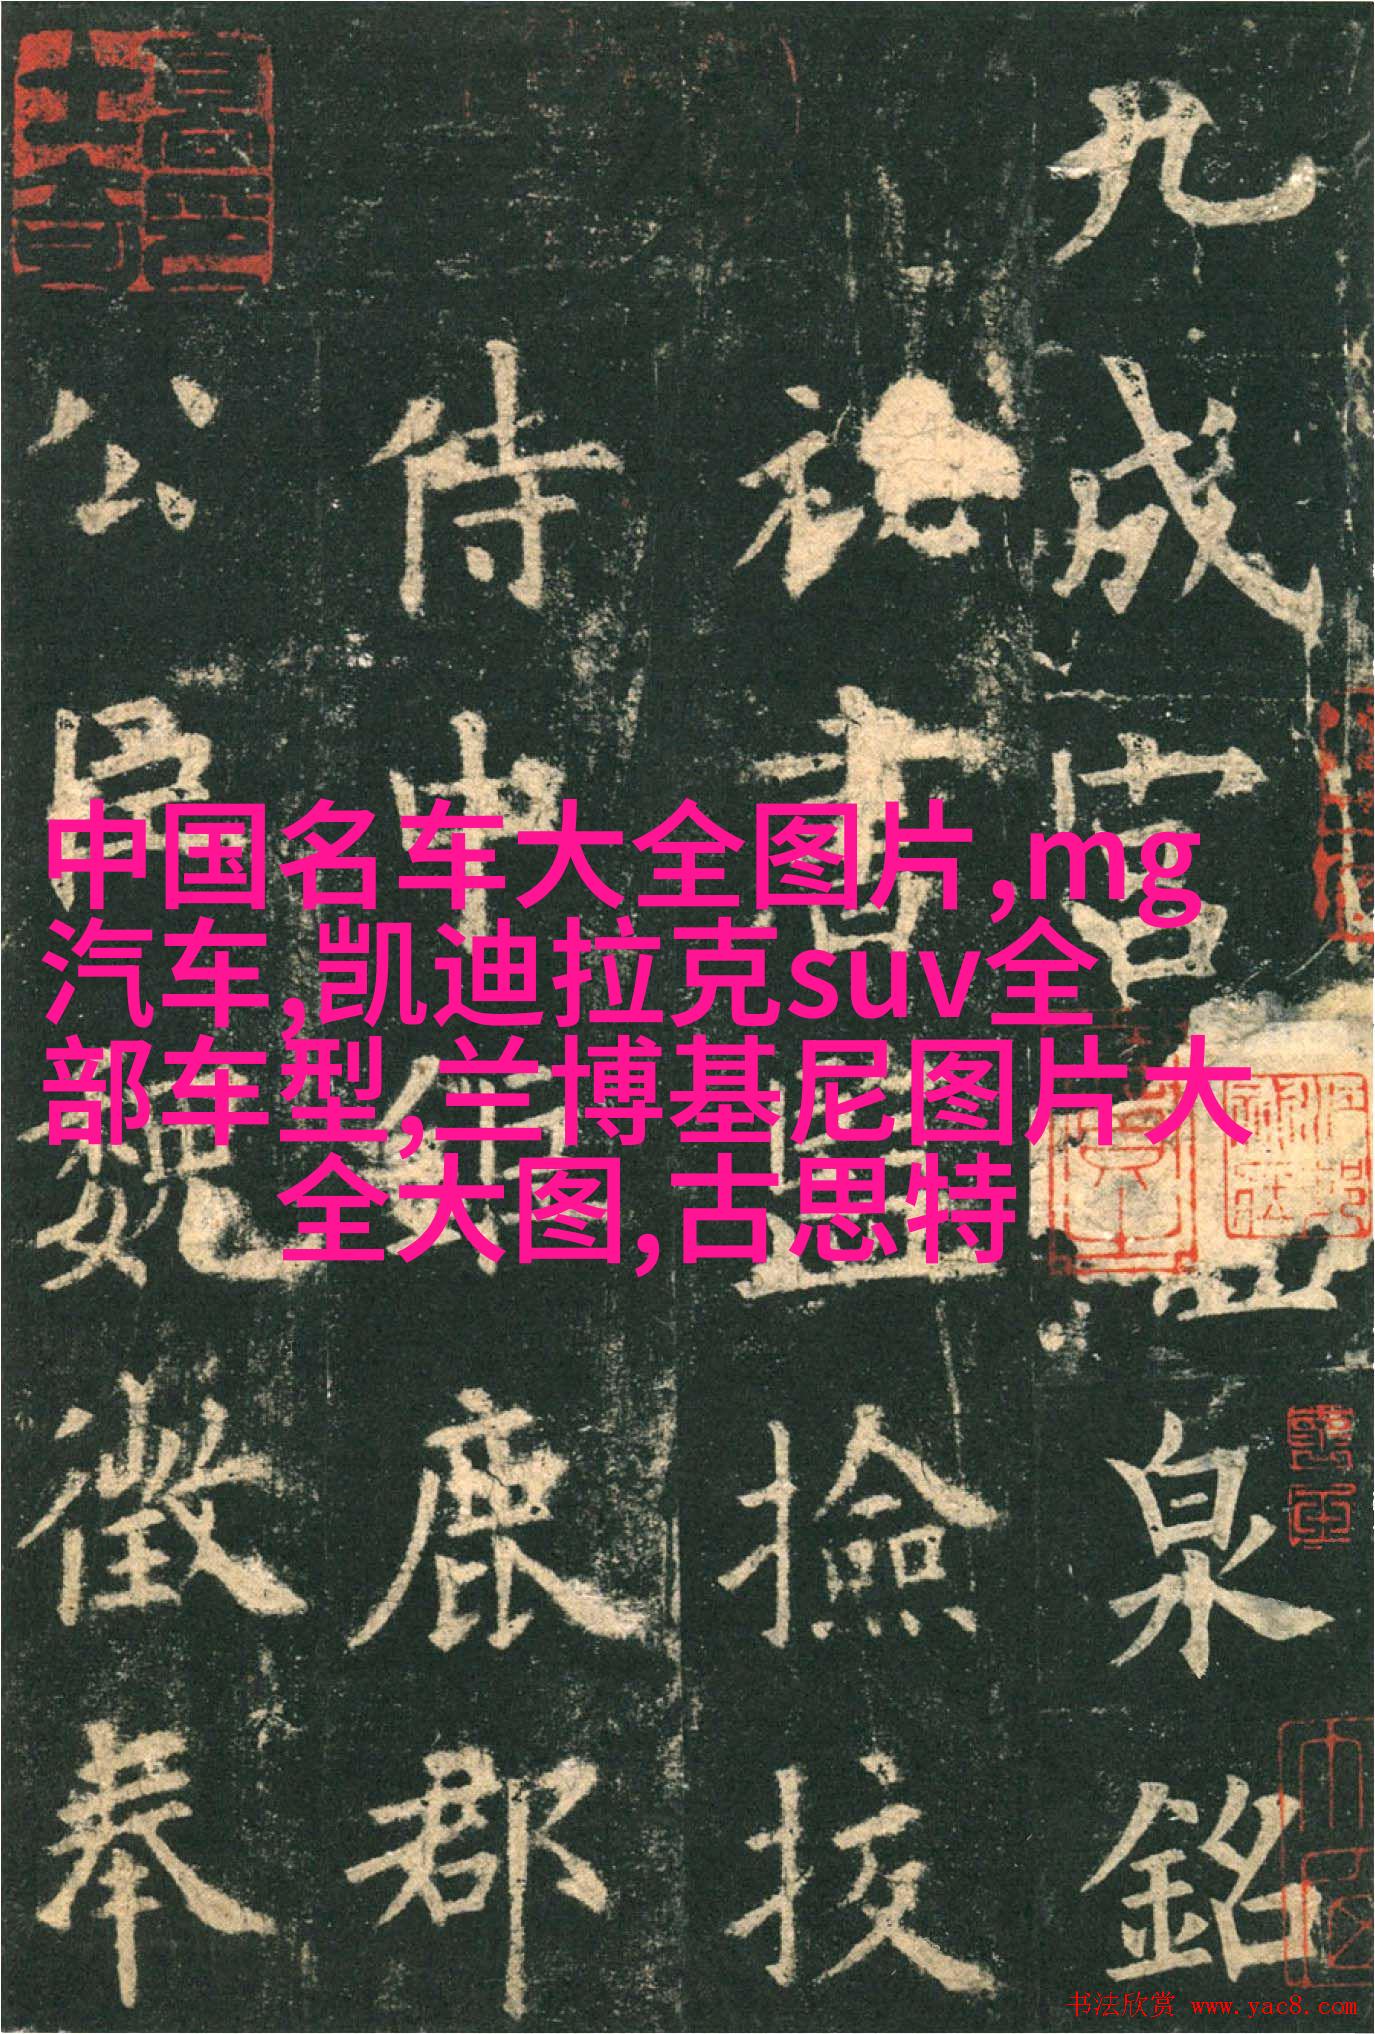 九成宮醴泉銘
秘書監撿挍
侍中鉅鹿郡
公臣魏徵奉
中国名车大全图片,mg
汽车,凯迪拉克suv全
部车型,兰博基尼图片大
全大图,古思特
书法欣赏 www.yac8.com